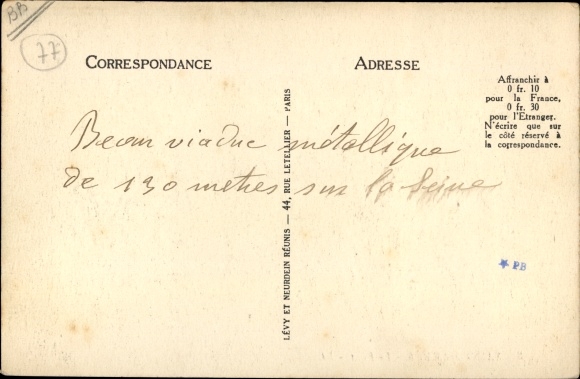 BB
77
CORRESPONDANCE
ADRESSE
Affranchir à
0 fr. 10
pour la France,
0 fr. 30
pour l'Etranger.
N'écrire que sur
le côté réservé à
la correspondance.
Beau viaduc métallique
de 130 metres sur la Seine
LÉVY ET NEURDEIN RÉUNIS — 44, RUE LETELLIER — PARIS
* PB